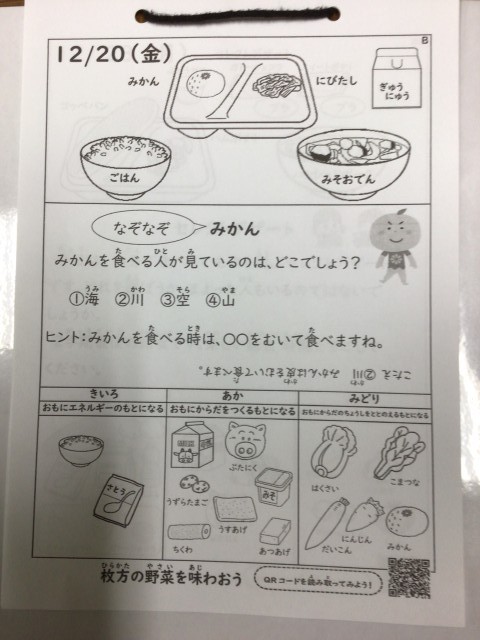 B
12/20(金)
みかん
にびたし
ぎゅうにゅう
ごはん
みそおでん
なぞなぞ みかん
みかんを食べる人が見ているのは、どこでしょう?
①海 ②川 ③空 ④山
ヒント:みかんを食べる時は、〇〇をむいて食べますね。
こたえ ②川 みかんは皮をむいて食べます。
きいろ あか みどり
おもにエネルギーのもとになる おもにからだをつくるもとになる おもにからだのちょうしをととのえるもとになる
さとう
ぶたにく
うずらたまご
みそ
うすあげ
ちくわ
あつあげ
はくさい
こまつな
にんじん
だいこん
みかん
枚方の野菜を味わおう
QRコードを読み取ってみよう!